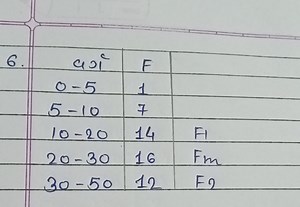 6. વર્ગ F
0-5 1
5-10 7
10-20 14 F1
20-30 16 Fm
30-50 12 F2